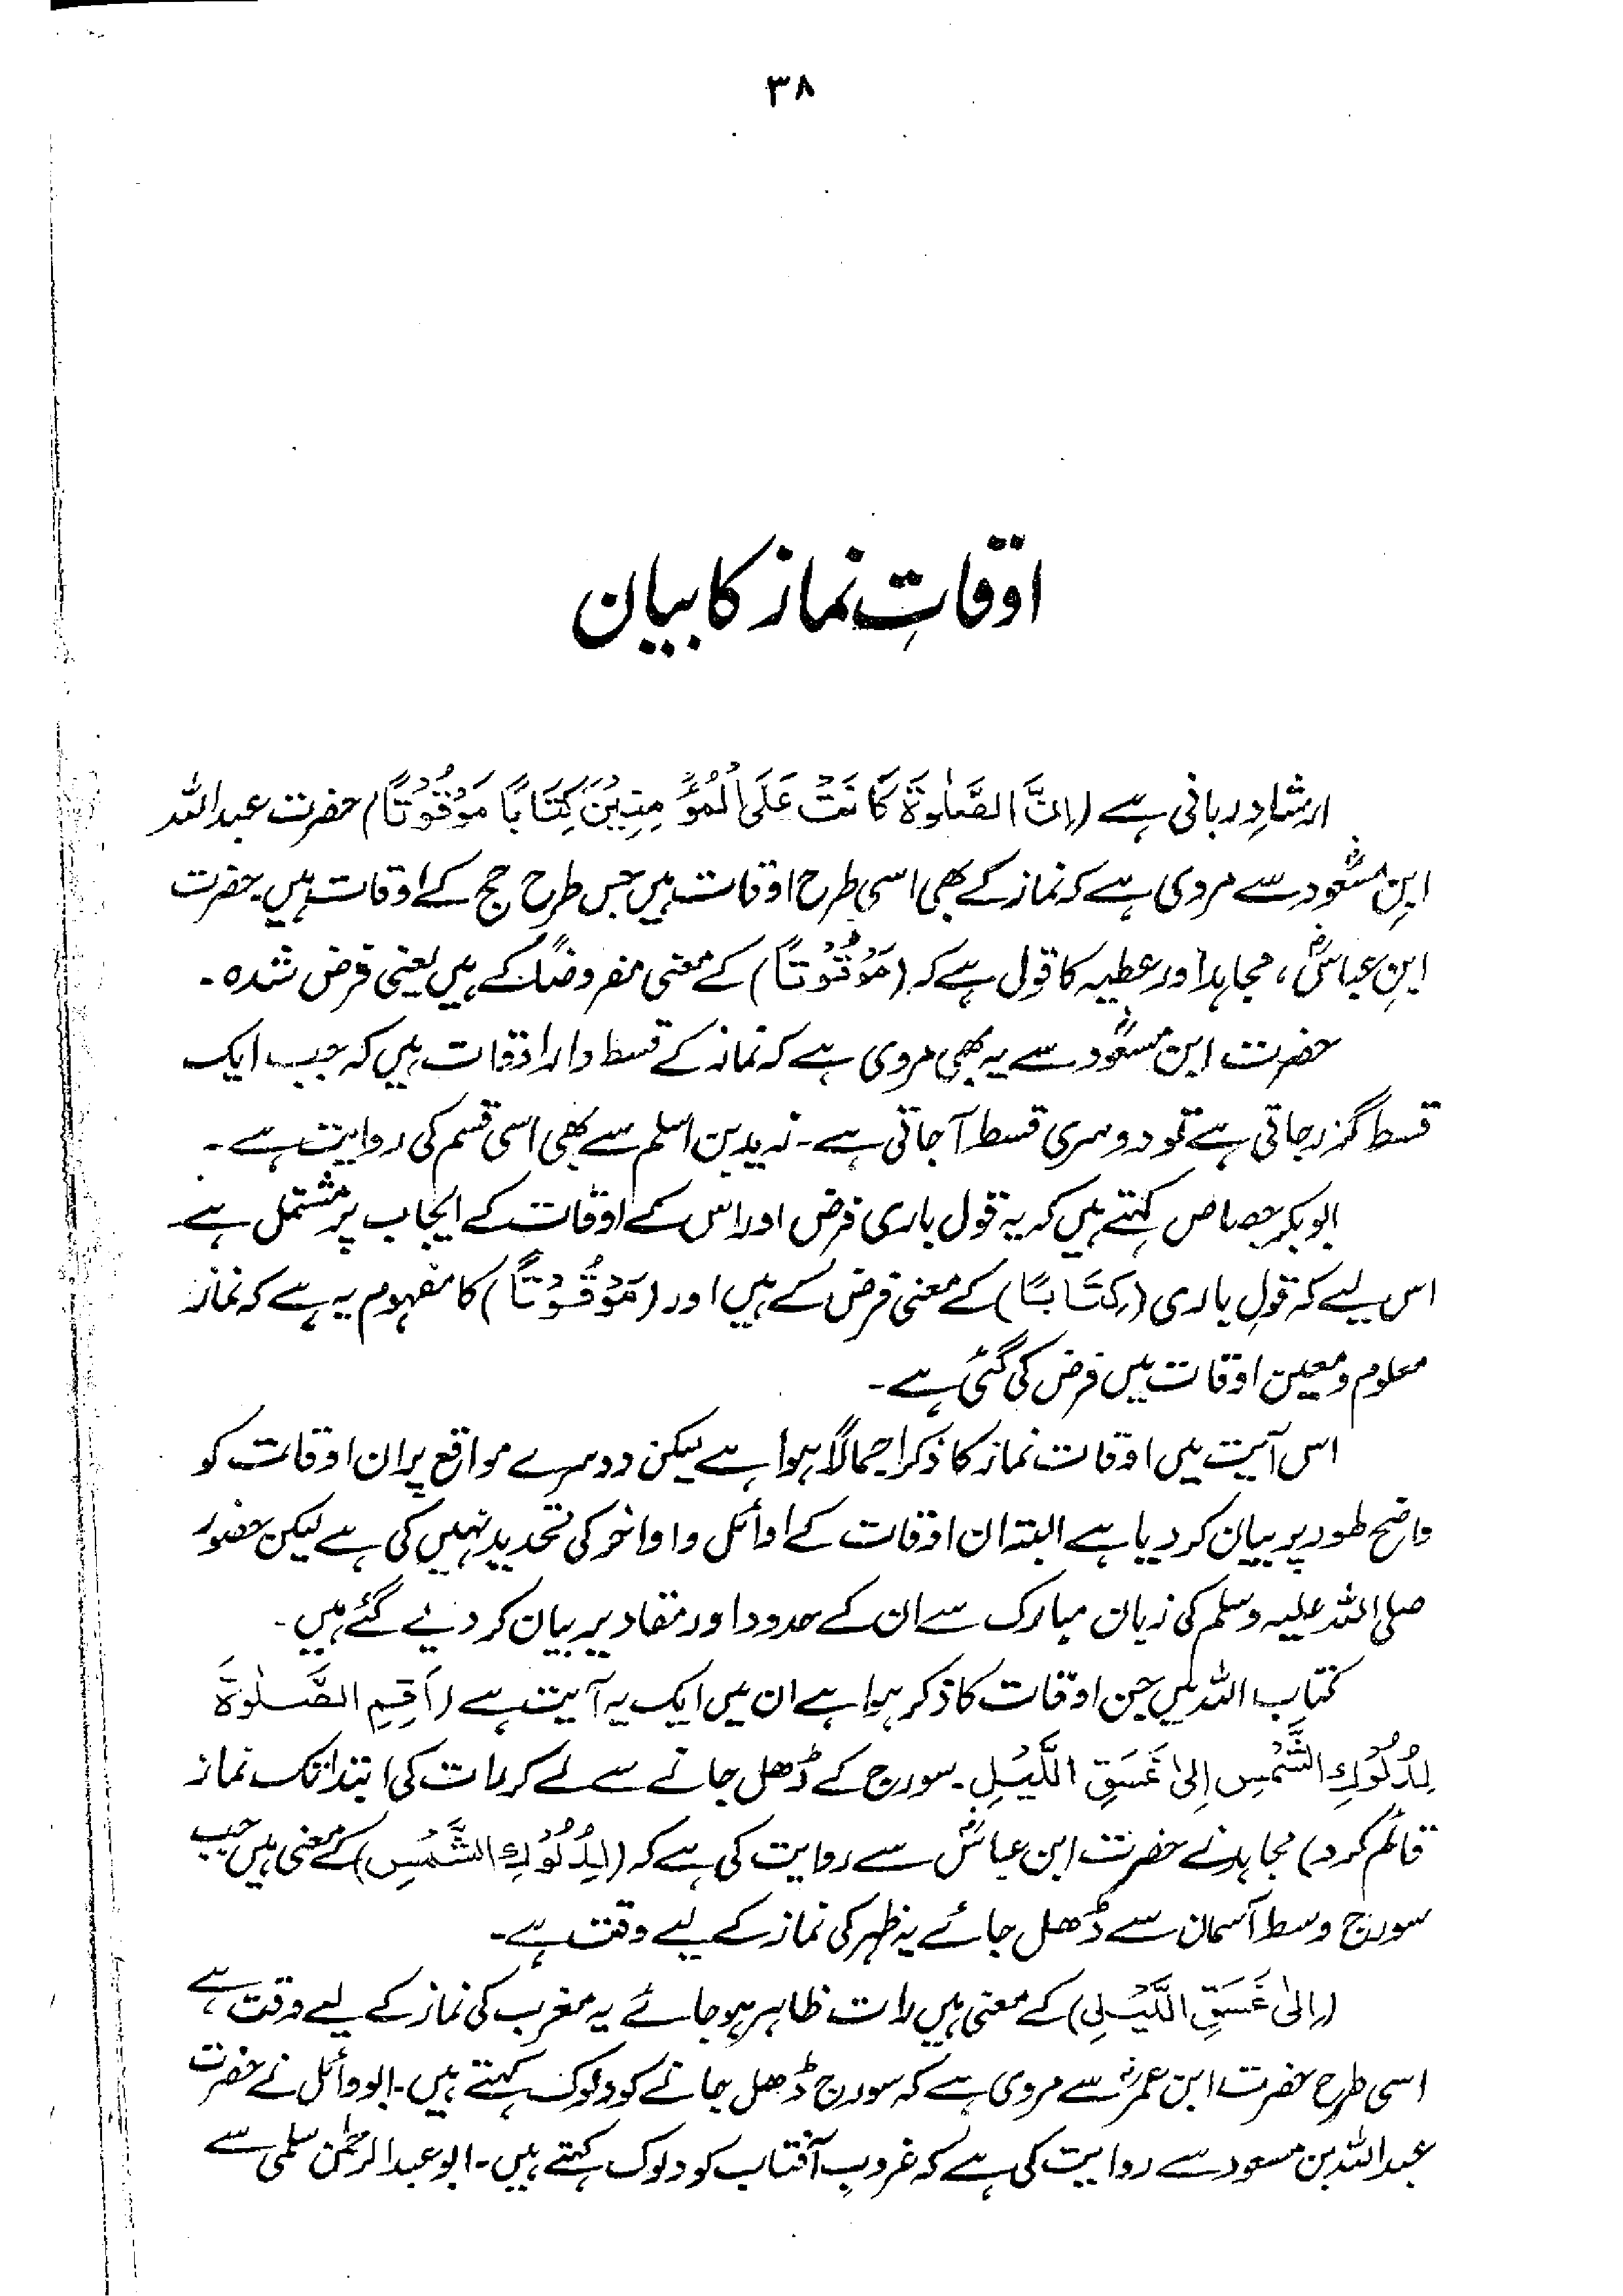 ۳۸
اوقاتِ نماز کا بیان
ارشادِ ربانی ہے (اِنَّ الصَّلٰوةَ کَانَتْ عَلَی الْمُؤْمِنِیْنَ کِتَابًا مَوْقُوْتًا) حضرت عبداللہ
ابنِ مسعودؓ سے مروی ہے کہ نماز کے بھی اسی طرح اوقات ہیں جس طرح حج کے اوقات ہیں۔ حضرت
ابنِ عباسؓ، مجاہد اور عطیہ کا قول ہے کہ (مَوْقُوْتًا) کے معنی مفروضًا کے ہیں یعنی فرض شدہ۔
حضرت ابن مسعودؓ سے یہ بھی مروی ہے کہ نماز کے قسط وار اوقات ہیں کہ جب ایک
قسط گزر جاتی ہے تو دوسری قسط آجاتی ہے۔ زید بن اسلم سے بھی اسی قسم کی روایت ہے۔
ابوبکر جصاص کہتے ہیں کہ یہ قول باری فرض اور اس کے اوقات کے ایجاب پر مشتمل ہے
اس لیے کہ قولِ باری (کِتَابًا) کے معنی فرض کے ہیں اور (مَوْقُوْتًا) کا مفہوم یہ ہے کہ نماز
معلوم و معین اوقات میں فرض کی گئی ہے۔
اس آیت میں اوقات نماز کا ذکر اجمالاً ہوا ہے لیکن دوسرے مواقع پر ان اوقات کو
واضح طور پر بیان کر دیا ہے البتہ ان اوقات کے اوائل و اواخر کی تحدید نہیں کی ہے لیکن حضور
صلی اللہ علیہ وسلم کی زبان مبارک سے ان کے حدود اور مقادیر بیان کر دیے گئے ہیں۔
کتاب اللہ میں جن اوقات کا ذکر ہوا ہے ان میں ایک یہ آیت ہے (اَقِمِ الصَّلٰوةَ
لِدُلُوْكِ الشَّمْسِ اِلیٰ غَسَقِ اللَّیْلِ۔ سورج کے ڈھل جانے سے لے کر رات کی ابتدا تک نماز
قائم کرو) مجاہد نے حضرت ابن عباسؓ سے روایت کی ہے کہ (لِدُلُوْكِ الشَّمْسِ) کے معنی ہیں جب
سورج وسط آسمان سے ڈھل جائے یہ ظہر کی نماز کے لیے وقت ہے۔
(اِلیٰ غَسَقِ اللَّیْلِ) کے معنی ہیں رات ظاہر ہو جائے یہ مغرب کی نماز کے لیے وقت ہے
اسی طرح حضرت ابن عمرؓ سے مروی ہے کہ سورج ڈھل جانے کو دلوک کہتے ہیں۔ ابو وائل نے حضرت
عبداللہ بن مسعود سے روایت کی ہے کہ غروبِ آفتاب کو دلوک کہتے ہیں۔ ابو عبدالرحمٰن سلمی سے